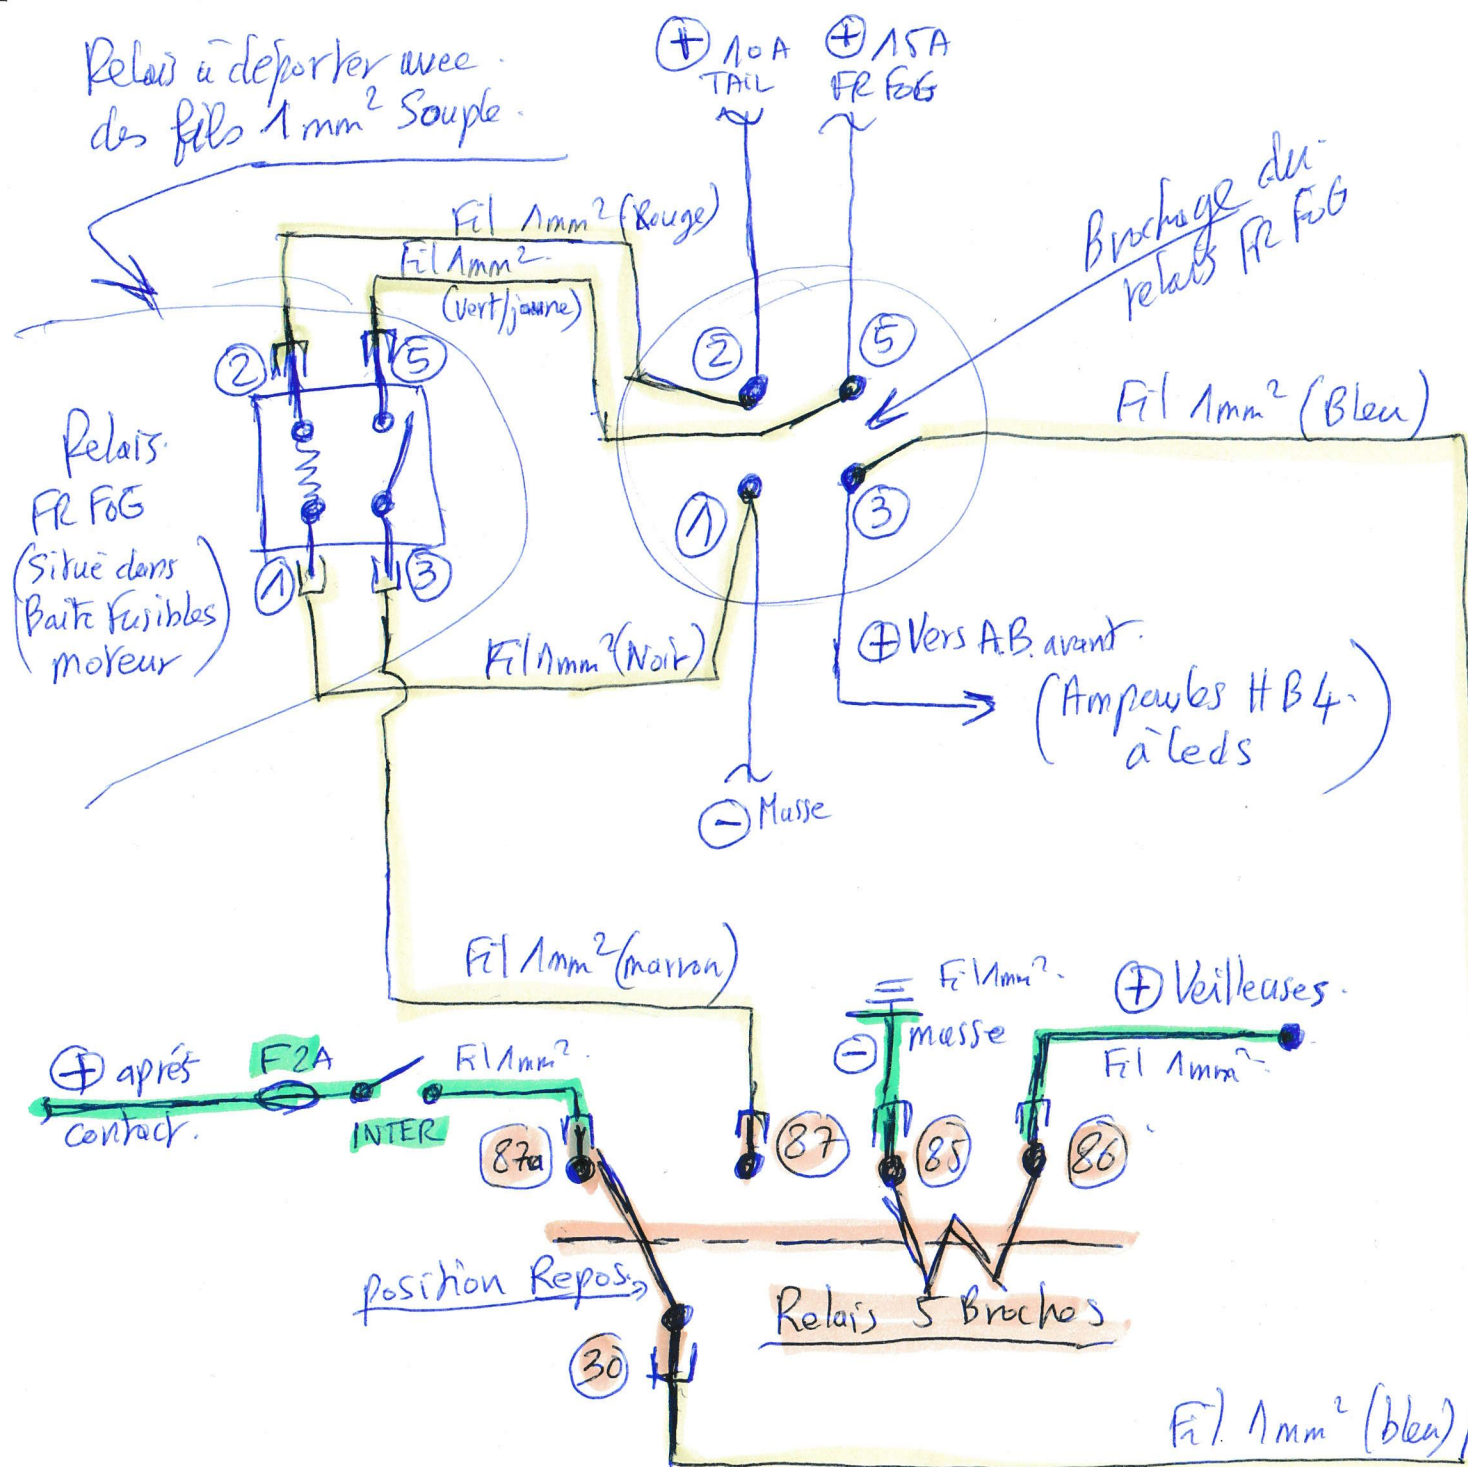 Relais à déporter avec
des fils 1mm² Souple.
+ 10A
TAIL
+ 15A
FR FOG
Brochage du
relais FR FOG
Fil 1mm² (Rouge)
Fil 1mm²
(vert/jaune)
2
5
2
5
Fil 1mm² (Bleu)
Relais
FR FOG
(Situé dans
Boite Fusibles
moteur)
1
3
1
3
Fil 1mm² (Noir)
+ Vers A.B. avant.
(Ampoules HB4
à leds)
- Masse
Fil 1mm² (marron)
Fil 1mm²
masse
-
+ Veilleuses
Fil 1mm²
+ après
contact.
F2A
INTER
Fil 1mm²
87a
87
85
86
position Repos
Relais 5 Broches
30
Fil 1mm² (bleu)